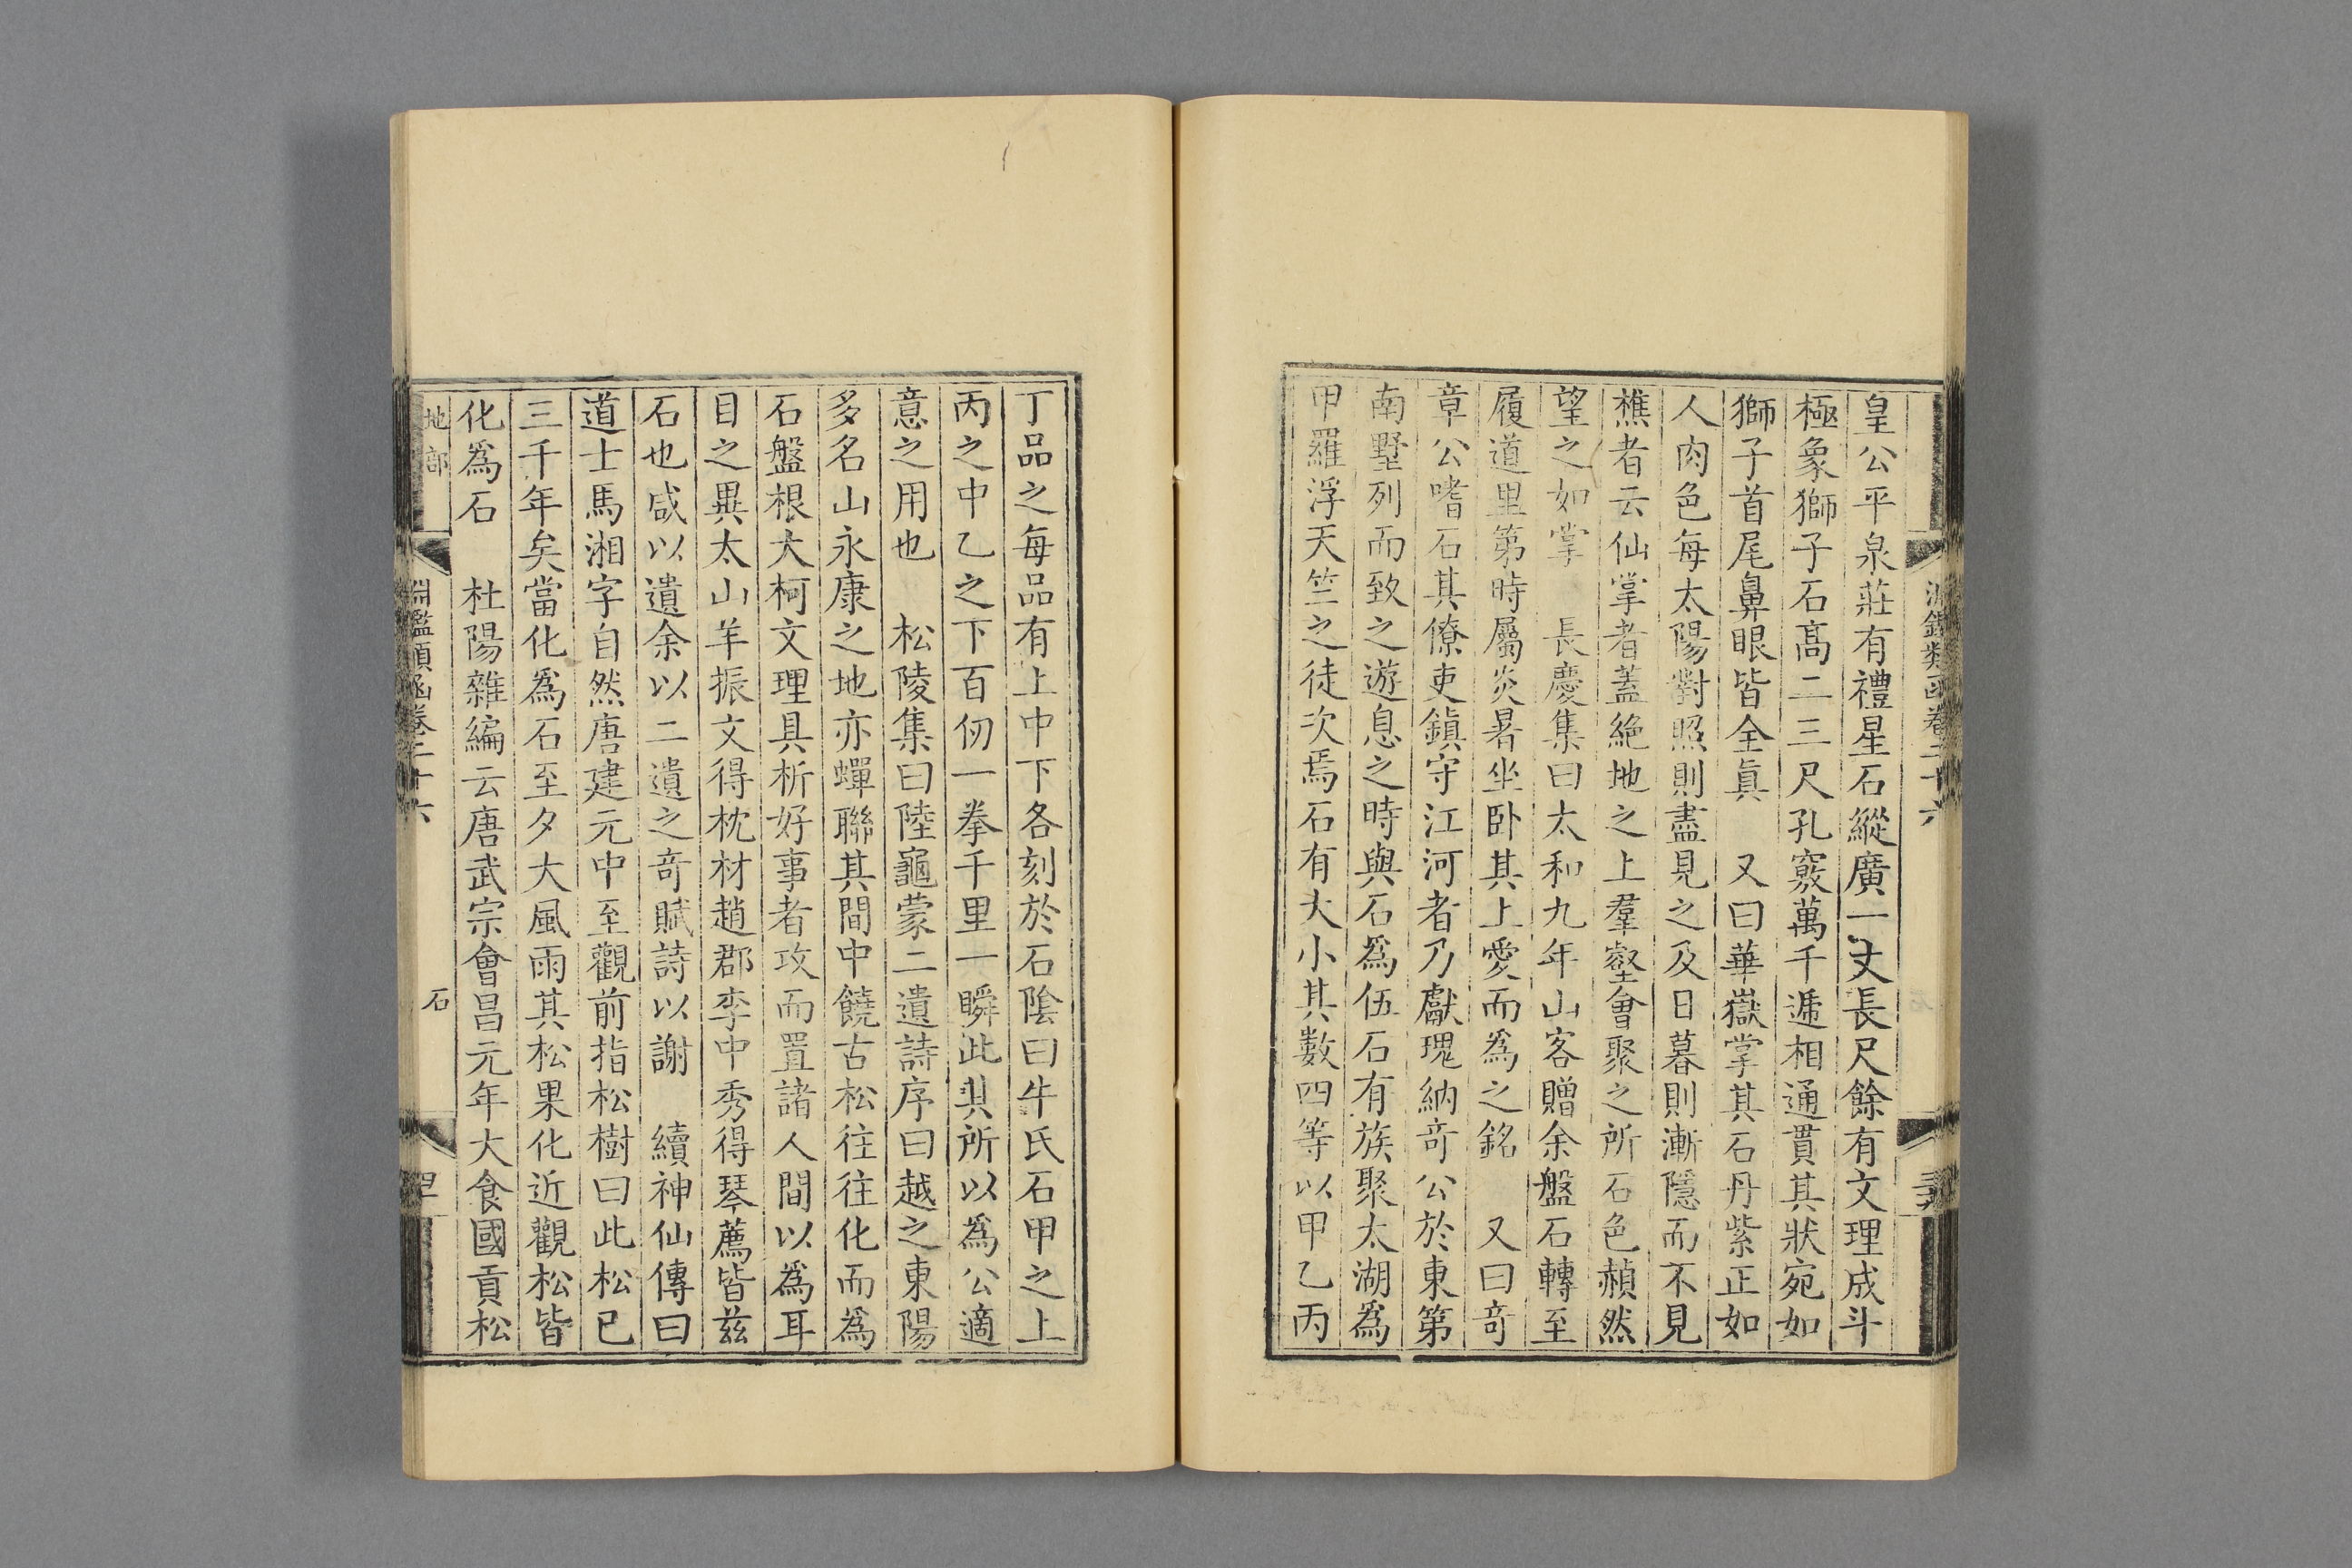 淵鑑類函卷二十六
皇公平泉莊有禮星石縱廣一丈長尺餘有文理成斗
極象獅子石髙二三尺孔竅萬千遞相通貫其狀宛如
獅子首尾鼻眼皆全眞　又曰華嶽掌其石丹紫正如
人肉色每太陽對照則盡見之及日暮則漸隱而不見
樵者云仙掌者蓋絶地之上羣壑會聚之所石色赬然
望之如掌　長慶集曰太和九年山客贈余盤石轉至
履道里第時屬炎暑坐卧其上愛而爲之銘　又曰竒
章公嗜石其僚吏鎭守江河者乃獻瑰納竒公於東第
南墅列而致之遊息之時與石爲伍石有族聚太湖爲
甲羅浮天竺之徒次焉石有大小其數四等以甲乙丙
丁品之每品有上中下各刻於石隂曰牛氏石甲之上
丙之中乙之下百仞一拳千里一瞬此其所以爲公適
意之用也　松陵集曰陸龜蒙二遺詩序曰越之東陽
多名山永康之地亦蟬聯其間中饒古松往往化而爲
石盤根大柯文理具析好事者攻而置諸人間以爲耳
目之異太山羊振文得枕材趙郡李中秀得琴薦皆兹
石也咸以遺余以二遺之竒賦詩以謝　續神仙傳曰
道士馬湘字自然唐建元中至觀前指松樹曰此松已
三千年矣當化爲石至夕大風雨其松果化近觀松皆
化爲石　杜陽雜編云唐武宗會昌元年大食國貢松
地部　淵鑑類函卷二十六　石